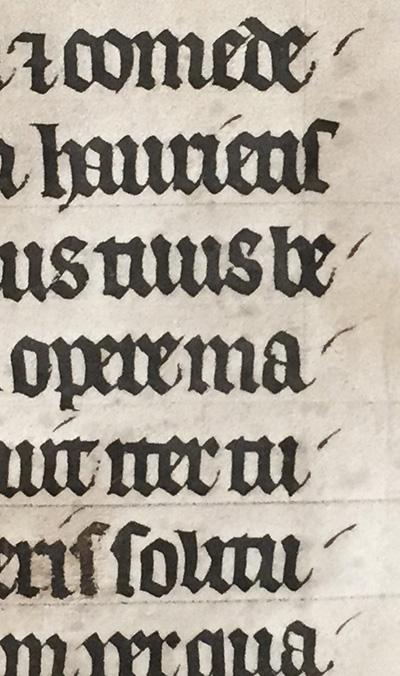 ⁊ comede-
hauriens
us tuus be-
opere ma-
uit iter tu-
eris solitu-
m per qua-